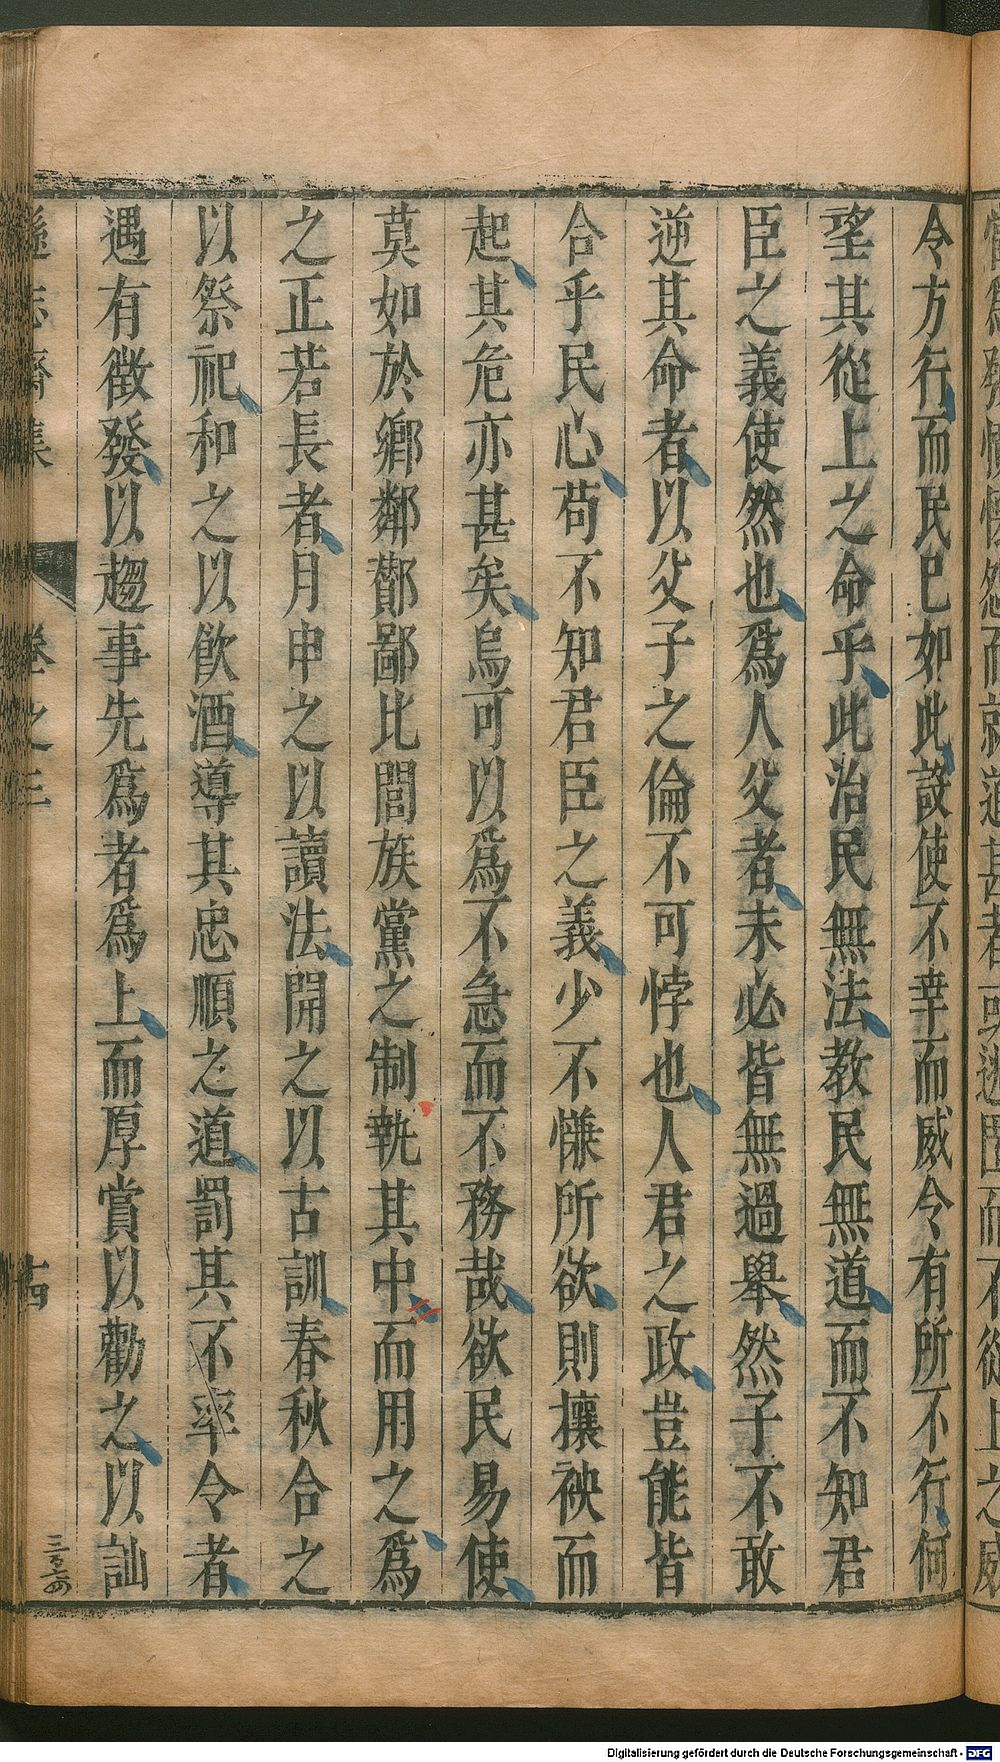 令方行而民已如此設使不幸而威令有所不行何
望其從上之命乎此治民無法教民無道而不知君
臣之義使然也爲人父者未必皆無過舉然子不敢
逆其命者以父子之倫不可悖也人君之政豈能皆
合乎民心苟不知君臣之義少不慊所欲則攘袂而
起其危亦甚矣烏可以爲不急而不務哉欲民易使
莫如於鄉鄰酇鄙比閭族黨之制執其中而用之爲
之正若長者月申之以讀法開之以古訓春秋合之
以祭祀和之以飲酒導其忠順之道罰其不率令者
遇有徵發以趨事先爲者爲上而厚賞以勸之以訕
遜志齋集 卷之三 十四
三百六四
Digitalisierung gefördert durch die Deutsche Forschungsgemeinschaft - DFG